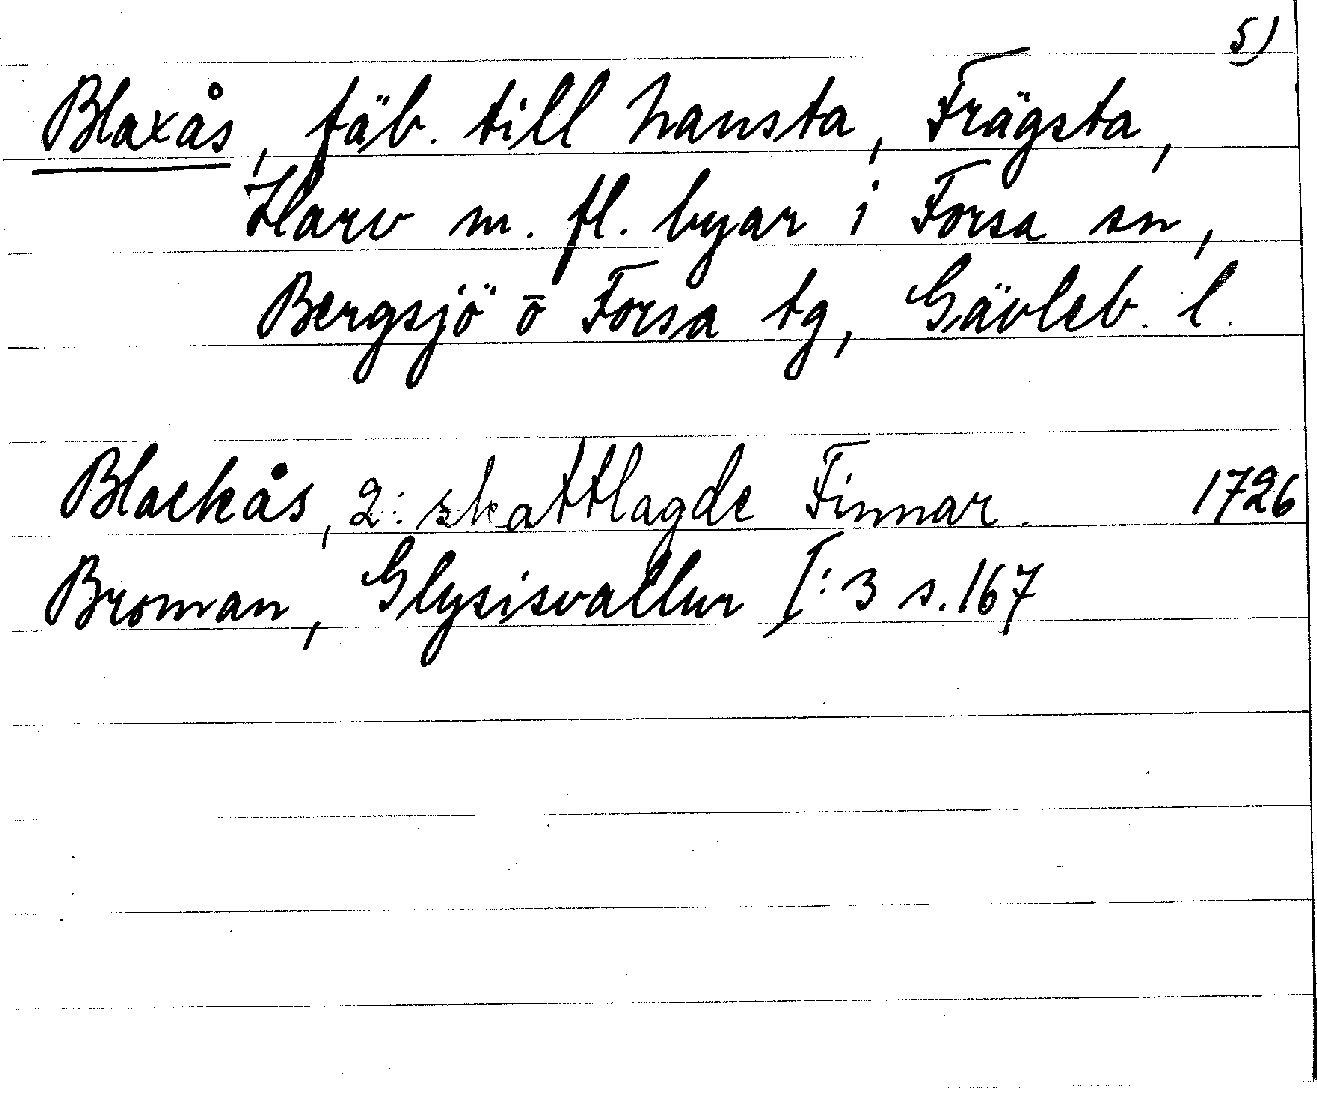 5)
Blaxås, fäb. till Hansta, Frägsta,
Harv m. fl. byar i Forsa sn,
Bergsjö o Forsa tg, Gävleb. l.
Blackås, 2: skattlagde Finnar. 1726
Broman, Glysisvallur I:3 s. 167